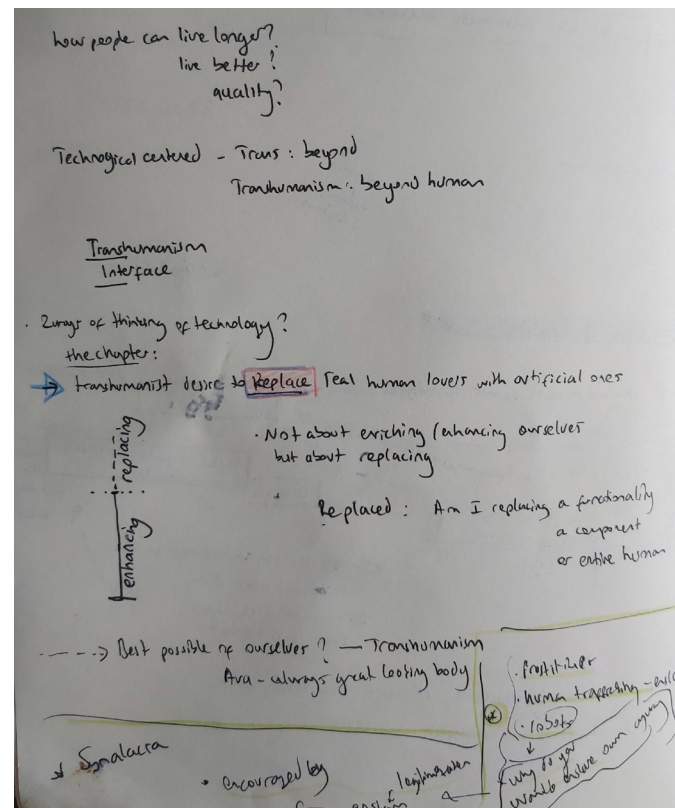 how people can live longer?
live better?
quality?
Technogical centered - Trans : beyond
Transhumanism : beyond human
Transhumanism
Interface
. 2 ways of thinking of technology?
the chapter:
→ transhumanist desire to Replace real human lovers with artificial ones
. Not about enriching / enhancing ourselves
but about replacing
replacing
enhancing
Replaced : Am I replacing a functionality
a component
or entire human
----> Best possible of ourselves ? — Transhumanism
Ava - always great looting body
. human trafficking -
. robots
why do you
want to enslave own
Symalacra
• encouraged by